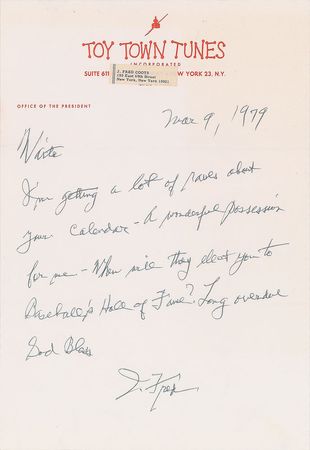 TOY TOWN TUNES
INCORPORATED
SUITE 611 W YORK 23, N.Y.
J. FRED COOTS
New York, New York
OFFICE OF THE PRESIDENT
Mar 9, 1979
I'm getting a lot of raves about
your Calendar - A wonderful possession
for me - When will they elect you to
Baseball's Hall of Fame? Long overdue
God Bless
J. Fred